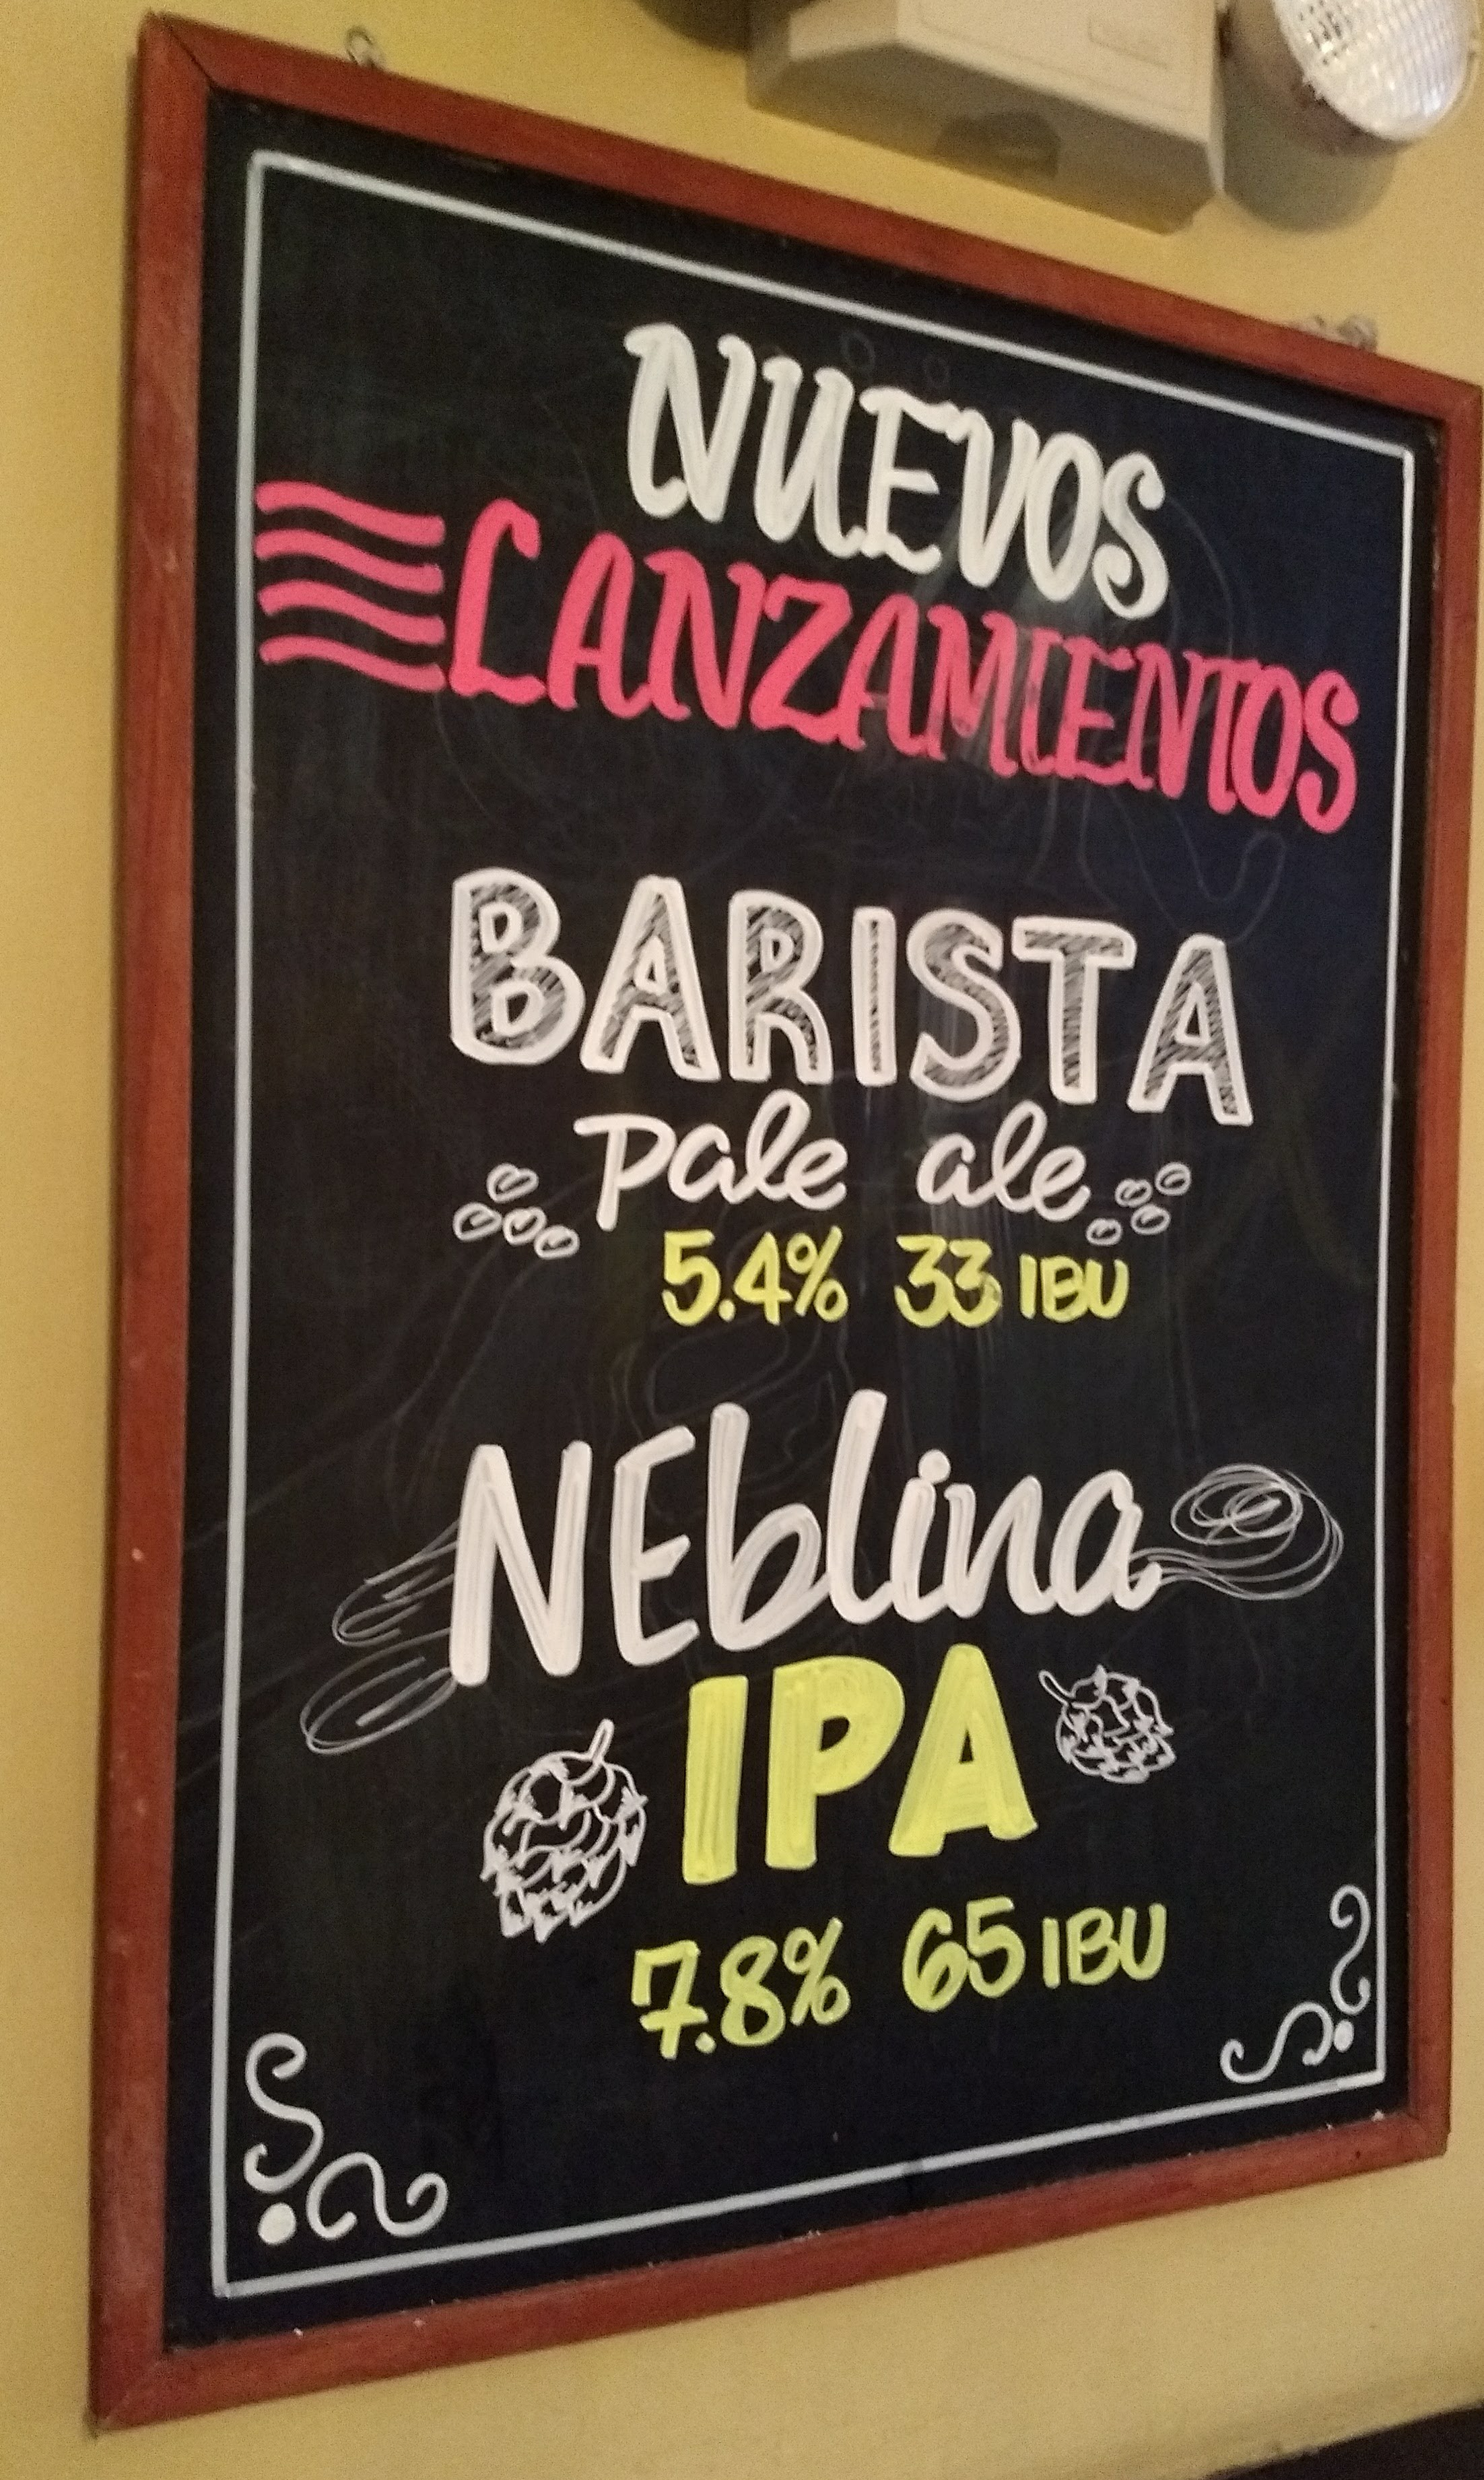 NUEVOS
LANZAMIENTOS
BARISTA
pale ale
5.4% 33 IBU
NEblina
IPA
7.8% 65 IBU